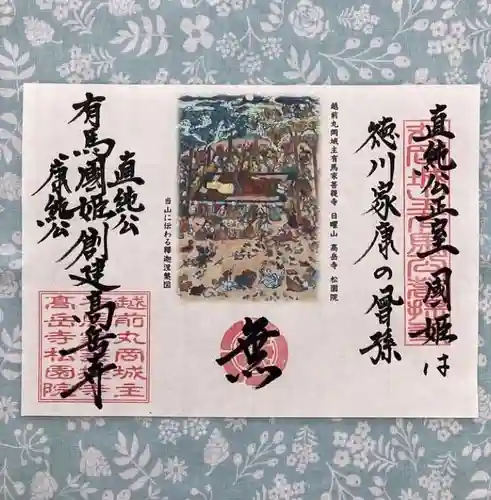 直純公正室 國姫は
徳川家康の曾孫
越前丸岡城主有馬家菩提寺 日曜山 高岳寺 松園院
当山に伝わる釋迦涅槃図
無
直純公
有馬國姫創建高岳寺
康純公
越前丸岡城主
高岳寺松園院